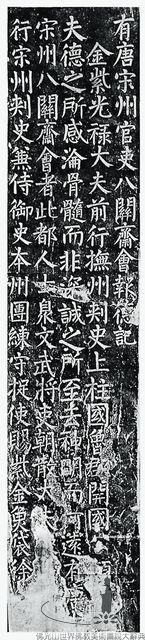 有唐宋州官吏八關齋會報德記
金紫光祿大夫前行撫州刺史上柱國魯郡開國
夫德之所感淪骨髓而非深誠之所至去神明而何遠有唐
宋州八關齋會者此都人士衆文武將吏朝散大夫
行宋州刺史兼侍御史本州團練守捉使賜紫金魚袋徐
佛光山世界佛教美術圖說大辭典